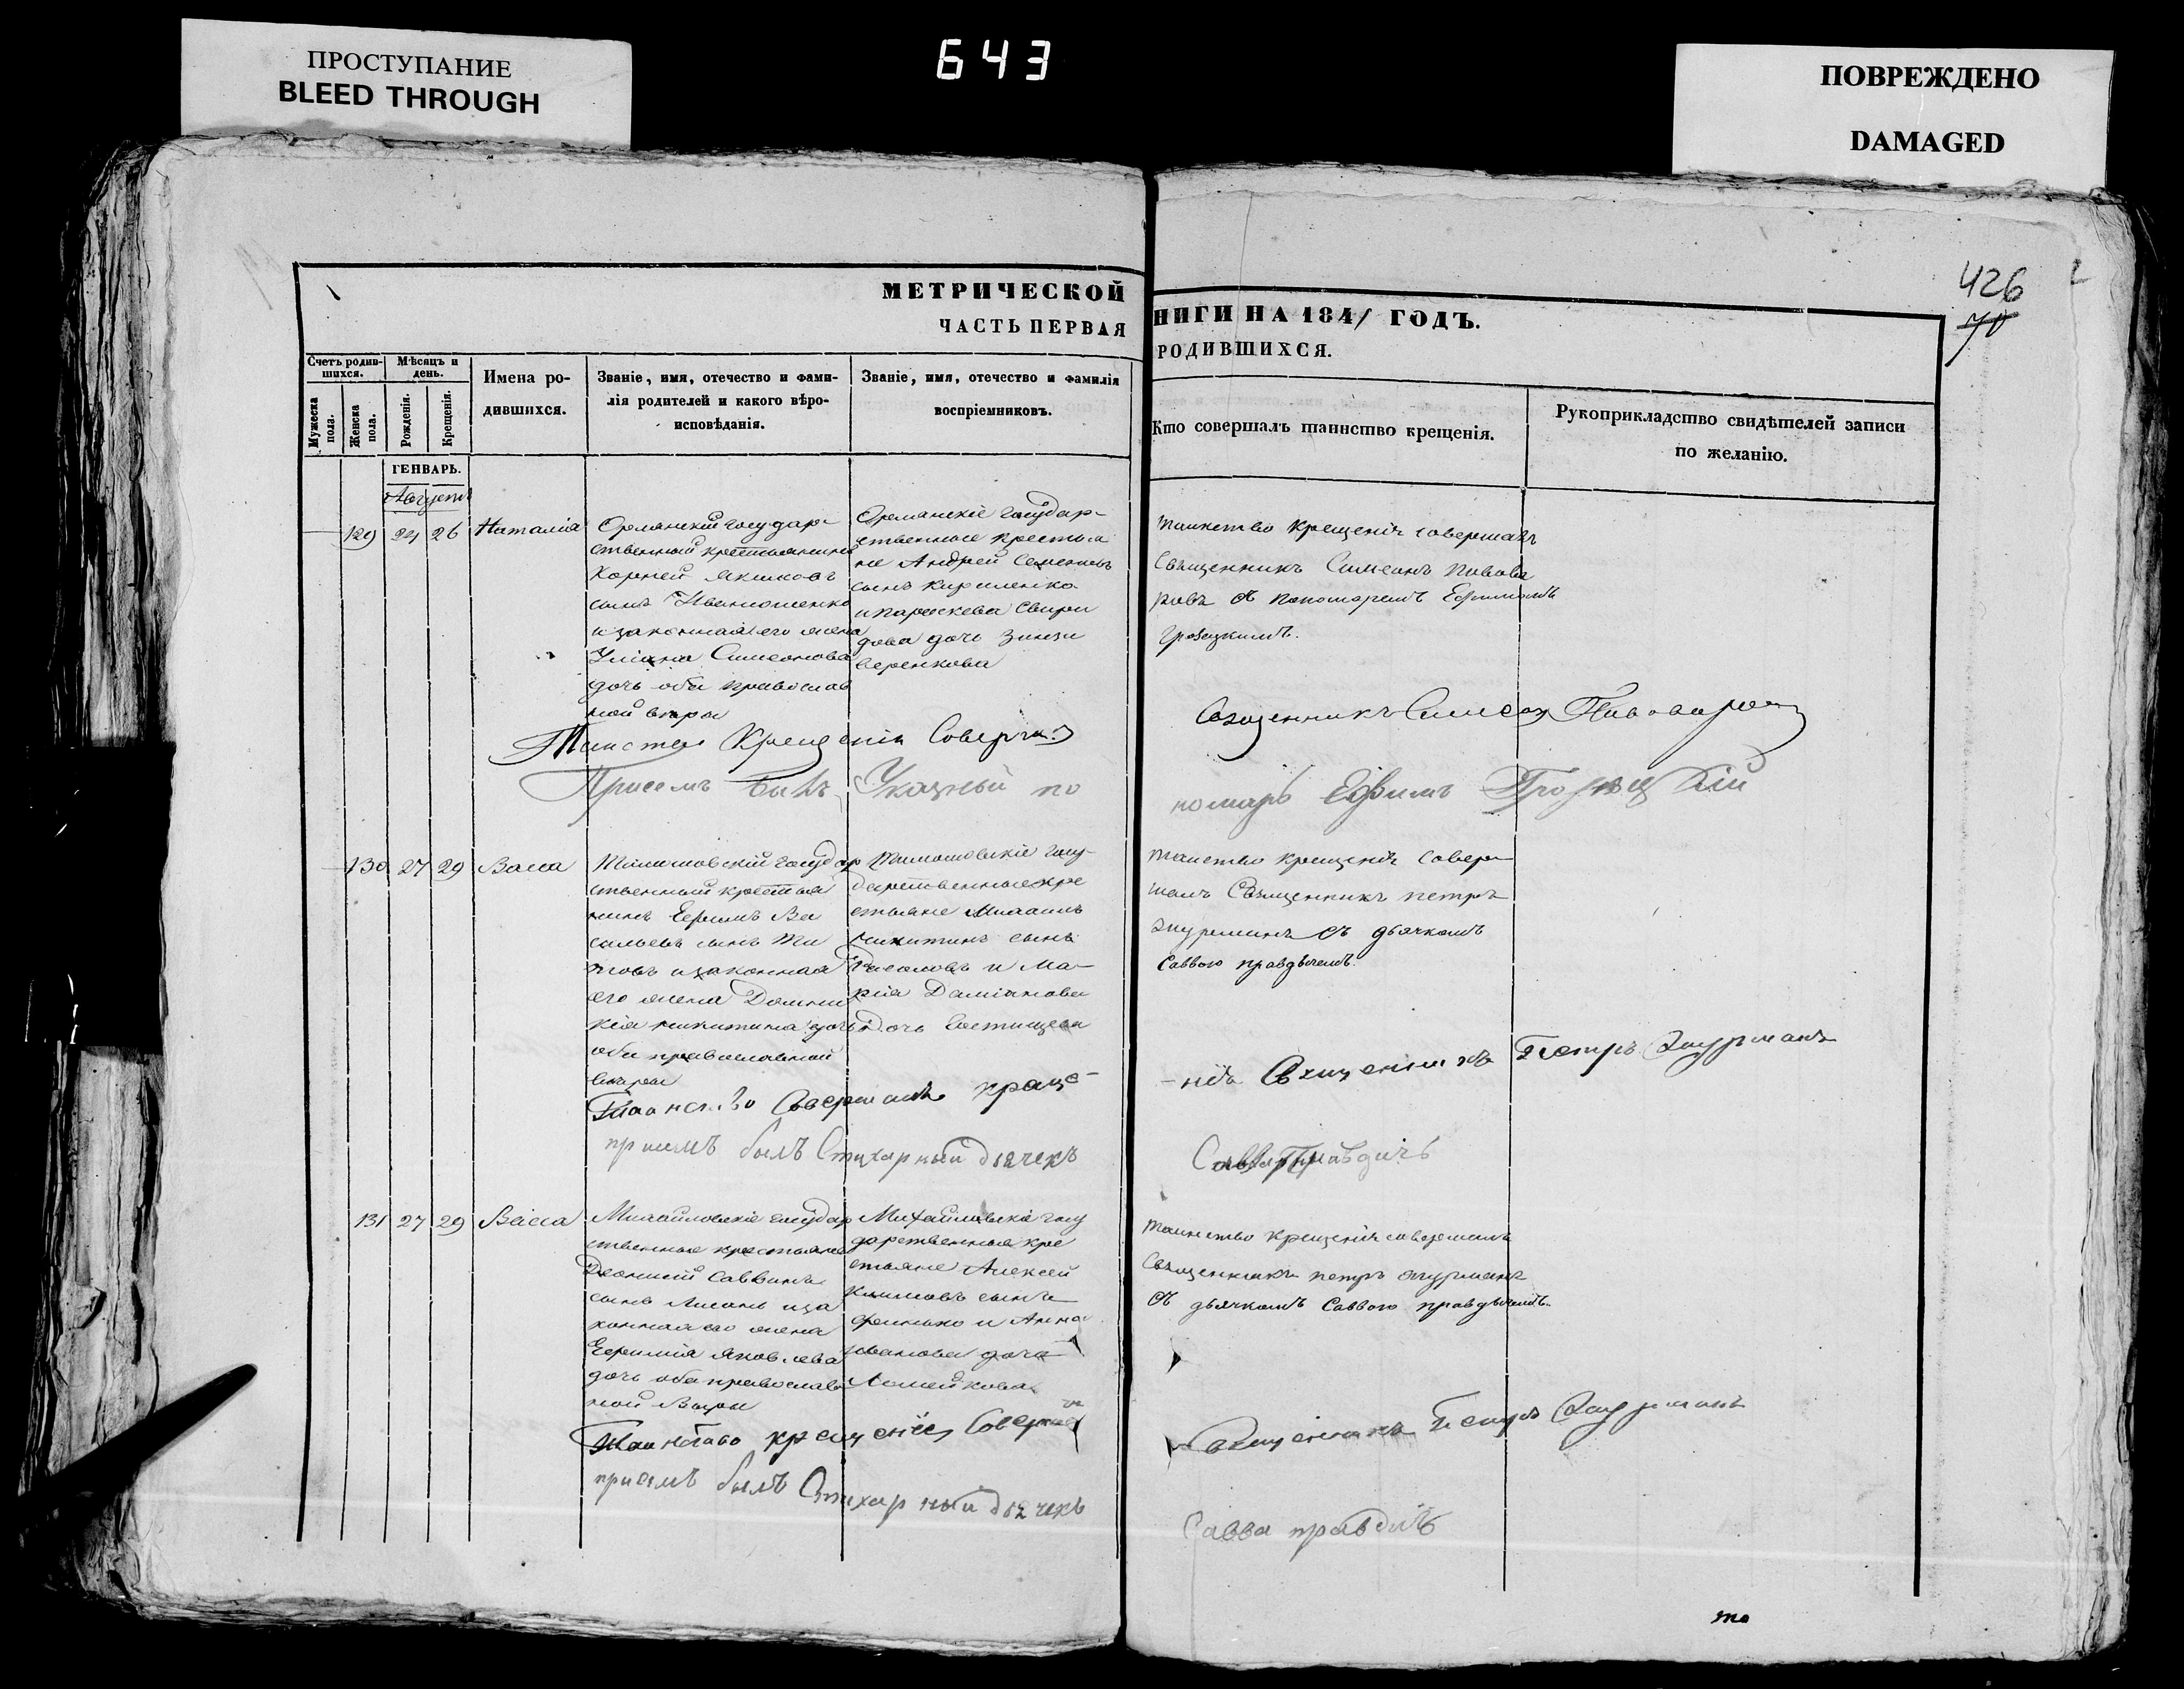 ПРОСТУПАНИЕ
BLEED THROUGH
643
ПОВРЕЖДЕНО
DAMAGED
426
70
МЕТРИЧЕСКОЙ
ЧАСТЬ ПЕРВАЯ
НИГИ НА 1841 ГОДЪ.
РОДИВШИХСЯ.
Счетъ родив-
шихся.
Мужеска
пола.
Женска
пола.
Мѣсяцъ и
день.
Рожденія.
Крещенія.
Имена ро-
дившихся.
Званіе, имя, отечество и фами-
лія родителей и какого вѣро-
исповѣданія.
Званіе, имя, отечество и фамилія
воспріемниковъ.
Кто совершалъ таинство крещенія.
Рукоприкладство свидѣтелей записи
по желанію.
ГЕНВАРЬ.
Августъ
129 24 26 Наталіа
Орлянскій государ-
ственный крестьянинъ
Корней Якимовъ
сынъ
и законная его жена
Уліана Симеонова
дочь оба православ
ной вѣры
Орлянскіе государ-
ственные крестья
не Андрей Семеновъ
сынъ Кириленко
и параскева Свири
дова дочь Зинзи
веренкова
таинство крещенія совершалъ
Священникъ Симеонъ Пивова
ровъ съ пономаремъ Ефимомъ
Грозецкимъ.
Таинство Крещенія Соверша:
Священникъ Симеон Пивоваров
Присемъ былъ Указный по
номарь Ефимъ
130 27 29 Васса
Тимошовскій государ
ственный крестья
нинъ Ефимъ Ва
сильевъ сынъ Ти
товъ и законная
его жена Домни
кія никитина дочь
оба православной
вѣры
Тимошовскіе госу-
дарственные кре
стьяне Михаилъ
никитинъ сынъ
и Ма-
рія Даміанова
дочь
таинство крещенія совер-
шалъ Священникъ петръ
съ дьячкомъ
Саввою правдычемъ.
Таинство Совершалъ креще-
-нія Священникъ Петръ
присемъ былъ Стихарный дьячекъ
Савва Правдичъ
131 27 29 Васса
Михайловскіе государ
ственные крестьяне
Діонисій Саввинъ
сынъ и за
конная его жена
Ефимія Яковлева
дочь оба православ
ной Вѣры
Михайловскіе госу
дарственные кре
стьяне Алексей
Климовъ сынъ
и Анна
иванова дочь
таинство крещенія совершалъ
Священникъ петръ
съ дьячкомъ Саввою правдычемъ.
Таинство крещеніе Соверша
Священникъ Петръ
присемъ былъ Стихарный дьячекъ
Савва правдичъ
то